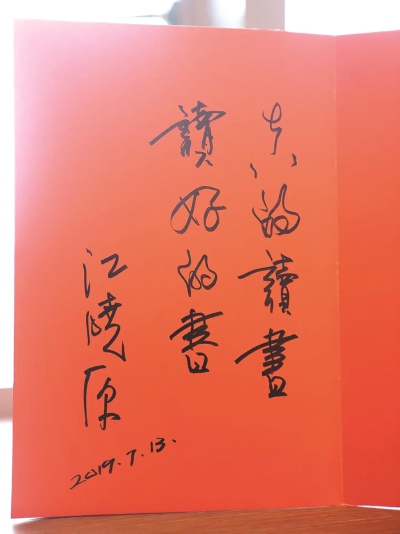 真的讀書
讀好的書
江曉原
2019.7.13.